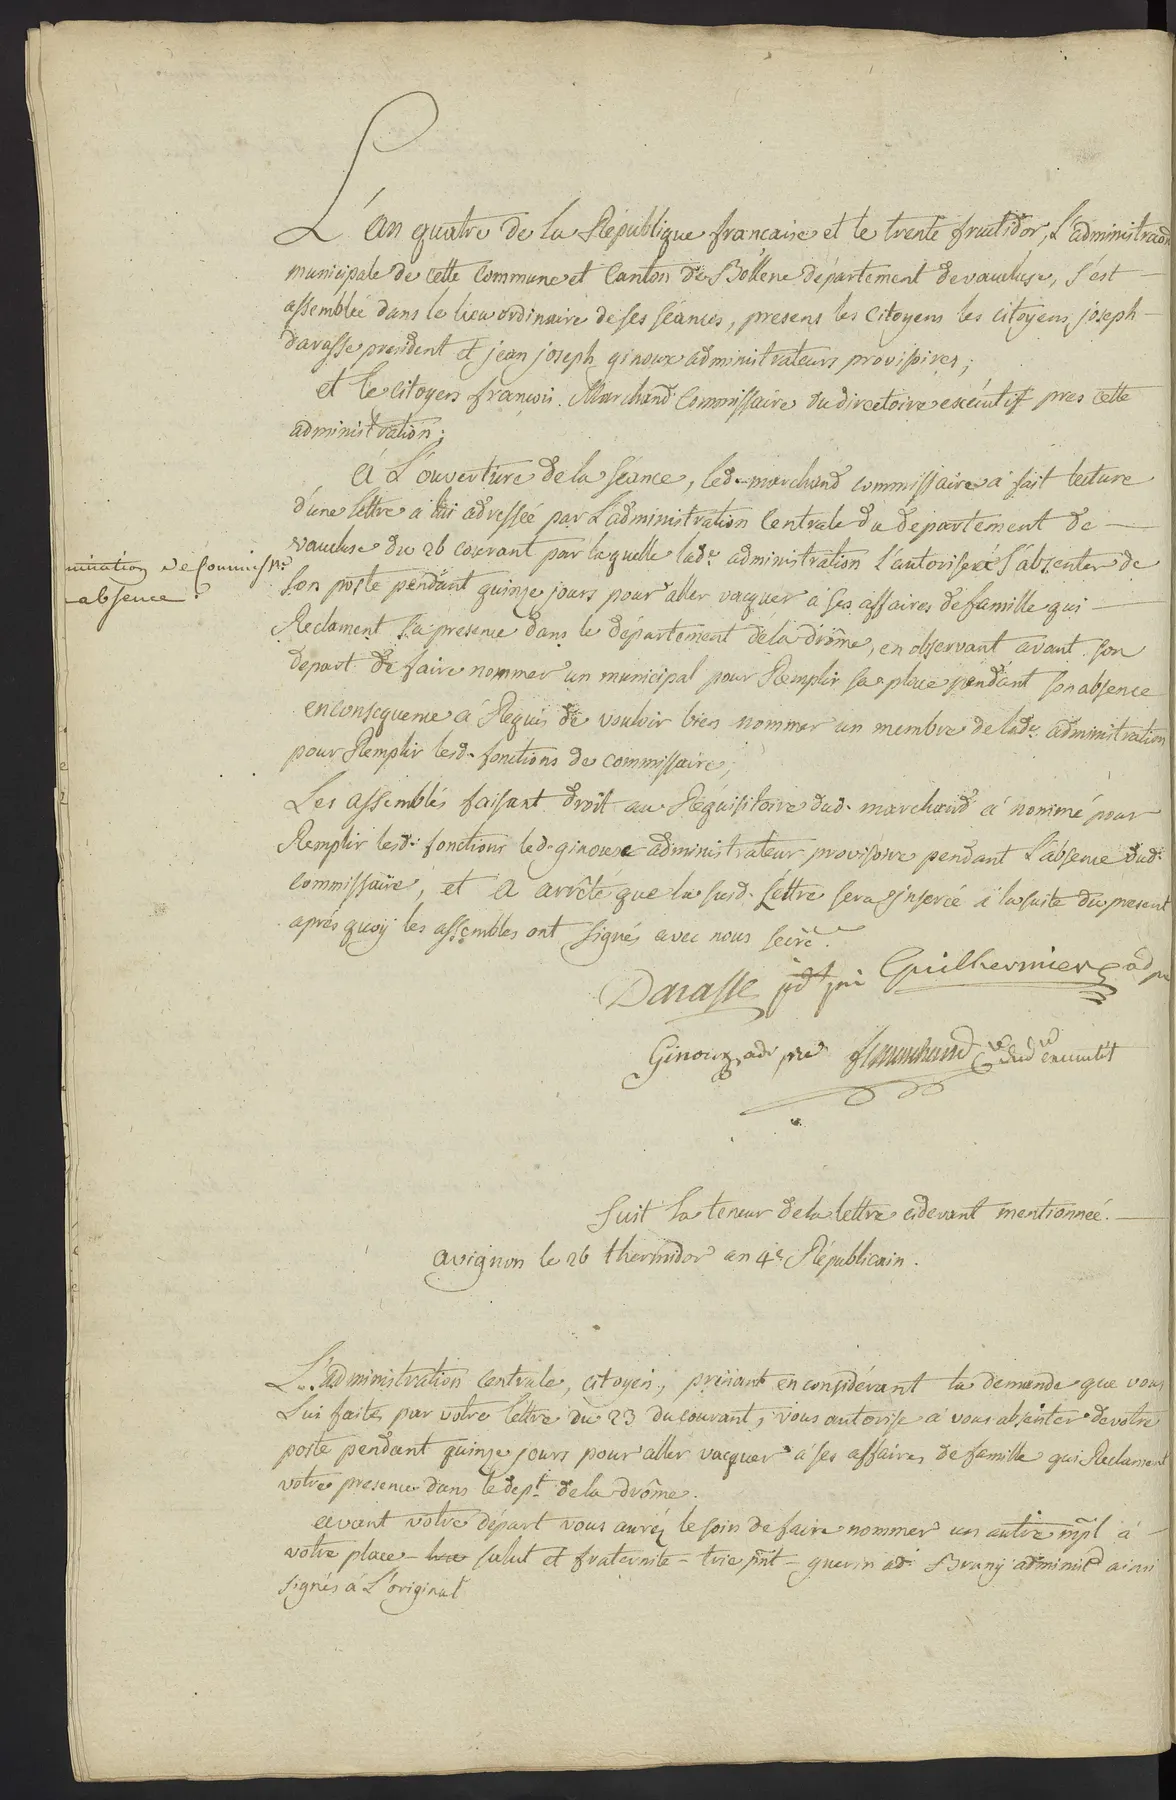 L'an quatre de la République française et le trente fructidor, L'administraõn
municipale de cette Commune et Canton de Bollene département de vaucluse, s'est
assemblée dans le lieu ordinaire de ses séances, presens les Citoyens les citoyens joseph
davasse president et jean joseph ginoux administrateurs provisoires;
et le citoyen françois Marchand Commissaire du directoire exécutif pres cette
administration;
a L'ouverture de la séance, led. marchand commissaire a fait lecture
d'une lettre a lui adressée par L'administration Centrale du departement de
vaucluse du 26 courant par laquelle lade. administration l'autorise a S'absenter de
son poste pendant quinze jours pour aller vacquer a ses affaires de famille qui
Réclament sa presence dans le département de la drôme, en observant avant son
depart de faire nommer un municipal pour Remplir sa place pendant son absence
en conséquence a Requis de vouloir bien nommer un membre de lade. administration
pour Remplir lesd. fonctions de commissaire;
Les assemblés faisant droit au Réquisitoire dud. marchand a nommé pour
Remplir lesd. fonctions led. ginoux administrateur provisoire pendant L'absence dud.
commissaire, et a arrêté que la susd. Lettre sera inserée a la suite du present
aprés quoy les assemblés ont signés avec nous secire.
mination de Commissre.
absence.
Davasse pdt pri Guilhermier ad
Ginoux adr pre fs marchand Cre dud re executif
Suit la teneur de la lettre cidevant mentionnée.
avignon le 26 thermidor an 4e Républicain.
L'administration Centrale, citoyen, prenant en considérant la demande que vous
Lui faites par votre lettre du 23 du courant, vous autorise a vous absenter de votre
poste pendant quinze jours pour aller vacquer a ses affaires de famille qui Reclament
votre presence dans le dept. de la drôme.
avant votre départ vous aurez le soin de faire nommer un autre mpl a
votre place - salut et fraternité - trie pnt - guerin ad. Bruny administ ainsi
signés a L'original